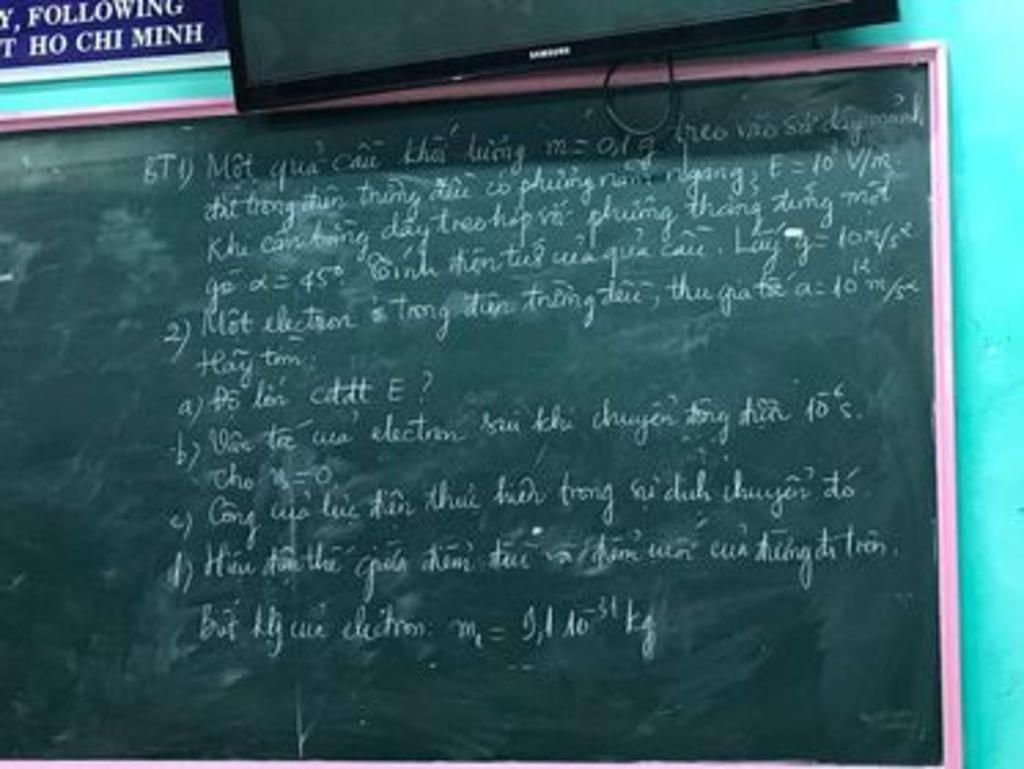 Y, FOLLOWING
T HO CHI MINH
SAMSUNG
BT1) Một quả cầu khối lượng m = 0,1g treo vào sợi dây mảnh
đặt trong điện trường đều có phương nằm ngang, E = 10³ V/m.
Khi cân bằng dây treo hợp với phương thẳng đứng một
góc α = 45°. Tính điện tích của quả cầu. Lấy g = 10m/s²
2) Một electron ở trong điện trường đều, thu gia tốc a = 10¹² m/s²
Hãy tìm:
a) Độ lớn cđđt E?
b) Vận tốc của electron sau khi chuyển động được 10⁻⁶s.
Cho = 0
c) Công của lực điện thực hiện trong sự dịch chuyển đó
d) Hiệu điện thế giữa điểm đầu và điểm cuối của đường đi trên.
Biết klg của electron: = 9,1 10⁻³¹ kg